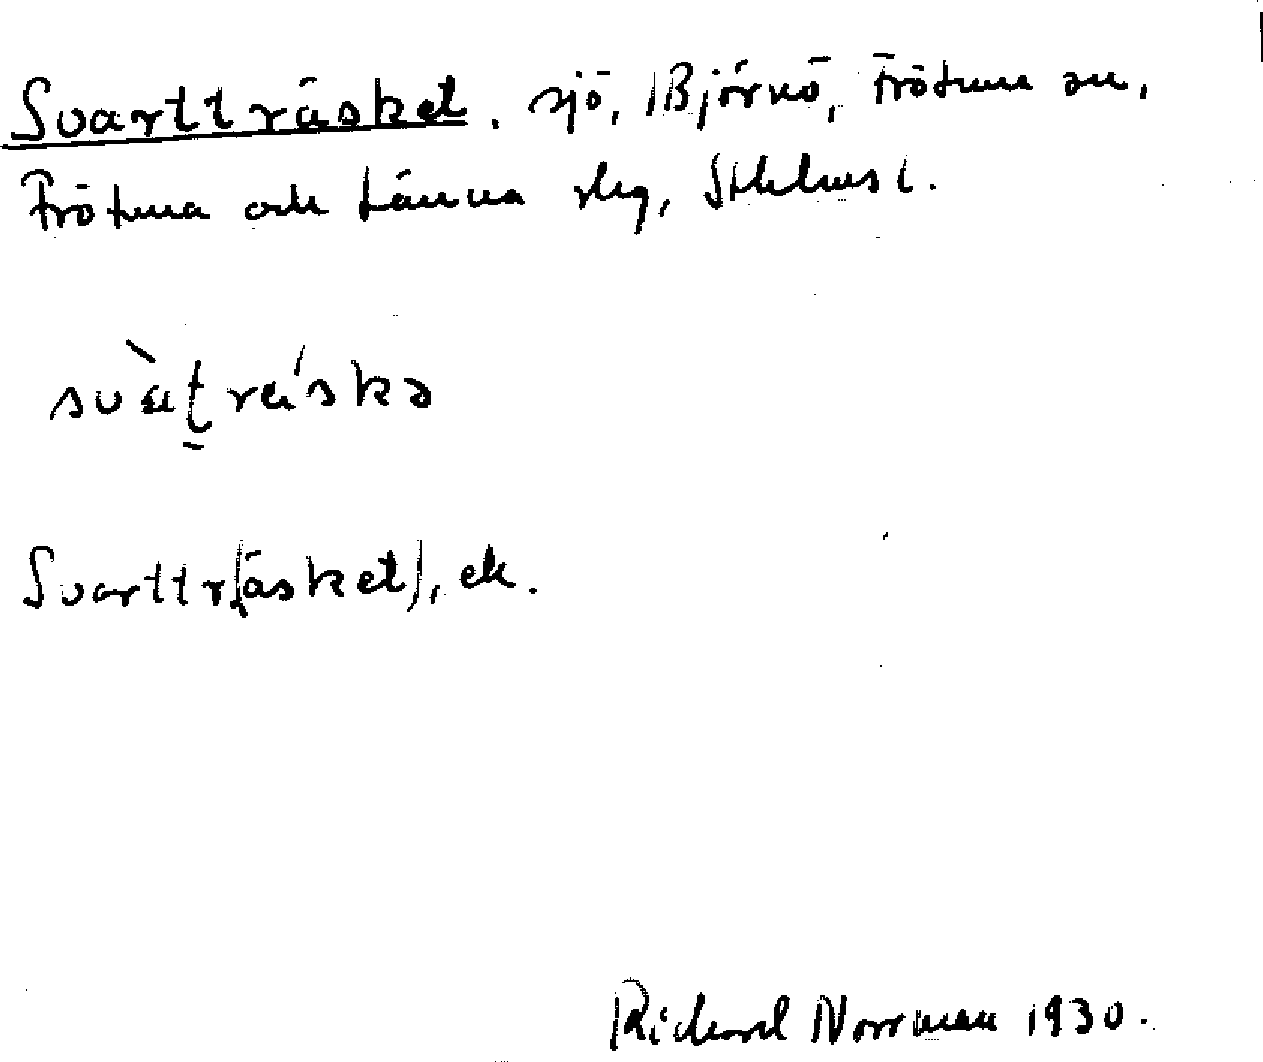 Svartträsket, sjö, Björnö, Frötuna sn,
Frötuna och Länna slg, Sthlms l.
svàt̠rä́skə
Svarttr(äsket), ek.
Richard Norrman 1930.